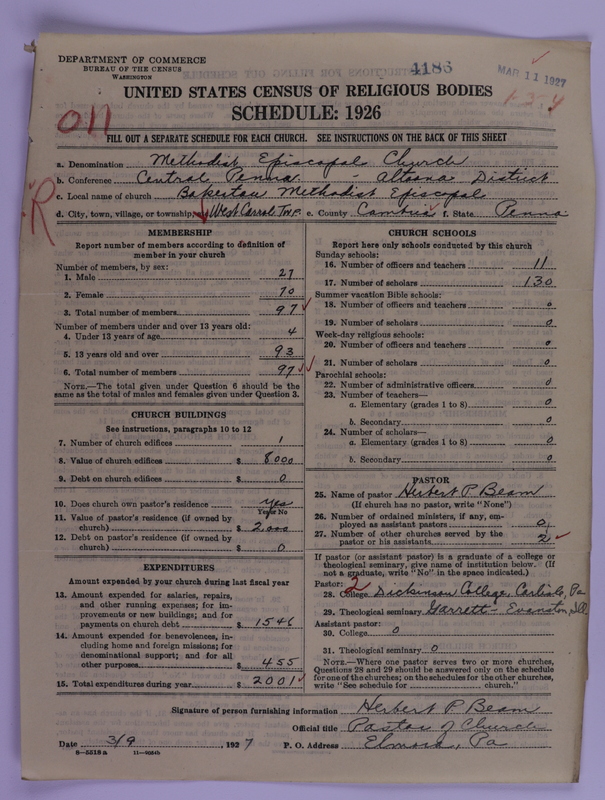 DEPARTMENT OF COMMERCE
BUREAU OF THE CENSUS
WASHINGTON
4186
MAR 11 1927
1-3-4
UNITED STATES CENSUS OF RELIGIOUS BODIES
SCHEDULE: 1926
011
FILL OUT A SEPARATE SCHEDULE FOR EACH CHURCH. SEE INSTRUCTIONS ON THE BACK OF THIS SHEET
a. Denomination Methodist Episcopal Church
b. Conference Central Penna - Altoona District
c. Local name of church Bakerton Methodist Episcopal
R
d. City, town, village, or township West Carrol Twp. e. County Cambria f. State Penna
MEMBERSHIP
Report number of members according to definition of
member in your church
Number of members, by sex:
1. Male 27
2. Female 70
3. Total number of members 97
Number of members under and over 13 years old:
4. Under 13 years of age 4
5. 13 years old and over 93
6. Total number of members 97
NOTE.—The total given under Question 6 should be the
same as the total of males and females given under Question 3.
CHURCH BUILDINGS
See instructions, paragraphs 10 to 12
7. Number of church edifices 1
8. Value of church edifices $ 8000
9. Debt on church edifices $ 0
10. Does church own pastor's residence yes
Yes or No
11. Value of pastor's residence (if owned by
church) $ 2000
12. Debt on pastor's residence (if owned by
church) $ 0
EXPENDITURES
Amount expended by your church during last fiscal year
13. Amount expended for salaries, repairs,
and other running expenses; for im-
provements or new buildings; and for
payments on church debt $ 1546
14. Amount expended for benevolences, in-
cluding home and foreign missions; for
denominational support; and for all
other purposes $ 455
15. Total expenditures during year $ 2001
CHURCH SCHOOLS
Report here only schools conducted by this church
Sunday schools:
16. Number of officers and teachers 11
17. Number of scholars 130
Summer vacation Bible schools:
18. Number of officers and teachers 0
19. Number of scholars 0
Week-day religious schools:
20. Number of officers and teachers 0
21. Number of scholars 0
Parochial schools:
22. Number of administrative officers 0
23. Number of teachers—
a. Elementary (grades 1 to 8) 0
b. Secondary 0
24. Number of scholars—
a. Elementary (grades 1 to 8) 0
b. Secondary 0
PASTOR
25. Name of pastor Herbert P Beam
(If church has no pastor, write "None")
26. Number of ordained ministers, if any, em-
ployed as assistant pastors 0
27. Number of other churches served by the
pastor or his assistants 2
If pastor (or assistant pastor) is a graduate of a college or
theological seminary, give name of institution below. (If
not a graduate, write "No" in the space indicated.)
Pastor: 2
28. College Dickinson College, Carlisle, Pa
29. Theological seminary Garrett - Evanston, Ill.
Assistant pastor:
30. College 0
31. Theological seminary 0
NOTE.—Where one pastor serves two or more churches,
Questions 28 and 29 should be answered only on the schedule
for one of the churches; on the schedules for the other churches,
write "See schedule for church."
Signature of person furnishing information Herbert P Beam
Official title Pastor of Church
Date 3/9, 1927 P. O. Address Elmora, Pa
8—5518 a 11—9084b